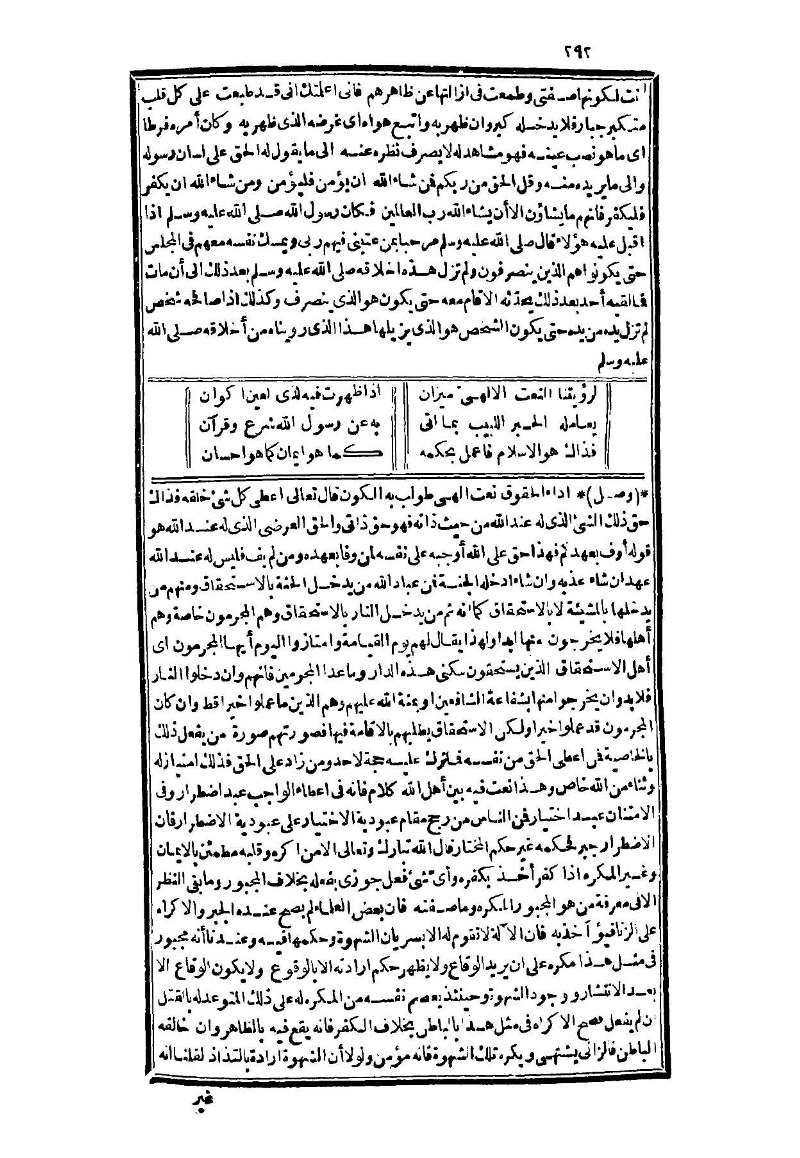 ٢٩٢
انت لكونها صفتى وطمعت فى ازالتها عن ظاهرهم فانى اعلمتك انى قد طبعت على كل قلب
متكبر جبار فلا يدخله كبر وان ظهر به واتبع هواه اى غرضه الذى ظهر به وكان أمره فرطا
اى ما هو نصب عينه فهو مشاهد له لا يصرف نظره عنه الى ما يقول له الحق على لسان رسوله
والى ما يريده منه وقل الحق من ربكم فمن شاء الله ان يؤمن فليؤمن ومن شاء الله ان يكفر
فليكفر فانهم ما يشاؤن الا أن يشاء الله رب العالمين فكان رسول الله صلى الله عليه وسلم اذا
اقبل عليه هؤلاء قال صلى الله عليه وسلم مرحبا بمن عتبنى فيهم ربى ويمسك نفسه معهم فى المجلس
حتى يكونوا هم الذين ينصرفون ولم تزل هذه اخلاقه صلى الله عليه وسلم بعد ذلك الى أن مات
فما لقيه أحد بعد ذلك يحدثه الا قام معه حتى يكون هو الذى ينصرف وكذلك اذا صافحه شخص
لم تزل يده من يده حتى يكون الشخص هو الذى يزيلها هذا الذى رويناه من أخلاقه صلى الله
عليه وسلم
لرؤيتنا النعت الالهى ميزان اذا ظهرت فيه لذى لعين اكوان
يعامله الحبر اللبيب بما اتى به عن رسول الله شرع وقرآن
فذاك هو الاسلام فاعمل بحكمه كما هو ايمان كما هو احسان
*(وصل)* اداء الحقوق نعت الهى طولب به الكون قال تعالى اعطى كل شئ خلقه فذاك
حق ذلك الشئ الذى له عند الله من حيث ذاته فهو حق ذاتى والحق العرضى الذى له عند الله هو
قوله أوف بعهدكم فهذا حق على الله أوجبه على نفسه لمن وفا بعهده ومن لم يف فليس له عند الله
عهد ان شاء عذبه وان شاء ادخله الجنة فمن عباد الله من يدخل الجنة بالاستحقاق ومنهم من
يدخلها بالمشيئة لا بالاستحقاق كما انه ثم من يدخل النار بالاستحقاق وهم المجرمون خاصة وهم
أهلها فلا يخرجون منها ابدا ولهذا يقال لهم يوم القيامة وامتازوا اليوم أيها المجرمون اى
أهل الاستحقاق الذين يستحقون سكنى هذه الدار وما عدا المجرمين فانهم وان دخلوا النار
فلا بد وان يخرجوا منها بشفاعة الشافعين او بمنة الله عليهم وهم الذين ما عملوا خيرا قط وان كان
المجرمون قد عملوا خيرا ولكن الاستحقاق يطلبهم بالاقامة فيها فصورتهم صورة من يفعل ذلك
بالخاصية فمن اعطى الحق من نفسه فلم يترك عليه حجة لاحد ومن زاد على الحق فذلك امتياز له
وثناء من الله خاص وهذا نعت فيه بين أهل الله كلام فانه فى اعطاء الواجب عبد اضطرار وفى
الامتنان عبد اختيار فمن الناس من رجح مقام عبودية الاختيار على عبودية الاضطرار فان
الاضطرار جبر فحكمه غير حكم المختار قال الله تبارك وتعالى الا من اكره وقلبه مطمئن بالايمان
وغير المكره اذا كفر أخذ بكفره وأى شئ فعل جوزى بفعله بخلاف المجبور وما بقى النظر
الا فى معرفة من هو المجبور المكره وما صفته فان بعض العلماء لم يصح عنده الجبر والاكراه
على الزنا فيؤاخذ به فان الآلة لا تقوم له الا بسريان الشهوة وحكمها فيه وعندنا أنه مجبور
فى مثل هذا مكره على ان يريد الوقاع ولا يظهر حكم ارادته الا بالوقوع ولا يكون الوقاع الا
بعد الانتشار ووجود الشهوة وحينئذ يعصم نفسه من المكره له على ذلك المتوعد له بالقتل
ان لم يفعل فصح الاكراه فى مثل هذا بالباطن بخلاف الكفر فانه يقنع فيه بالظاهر وان خالفه
الباطن فالزانى يشتهى ويكره تلك الشهوة فانه مؤمن ولولا أن الشهوة ارادة بالتذاذ لقلنا انه
غير